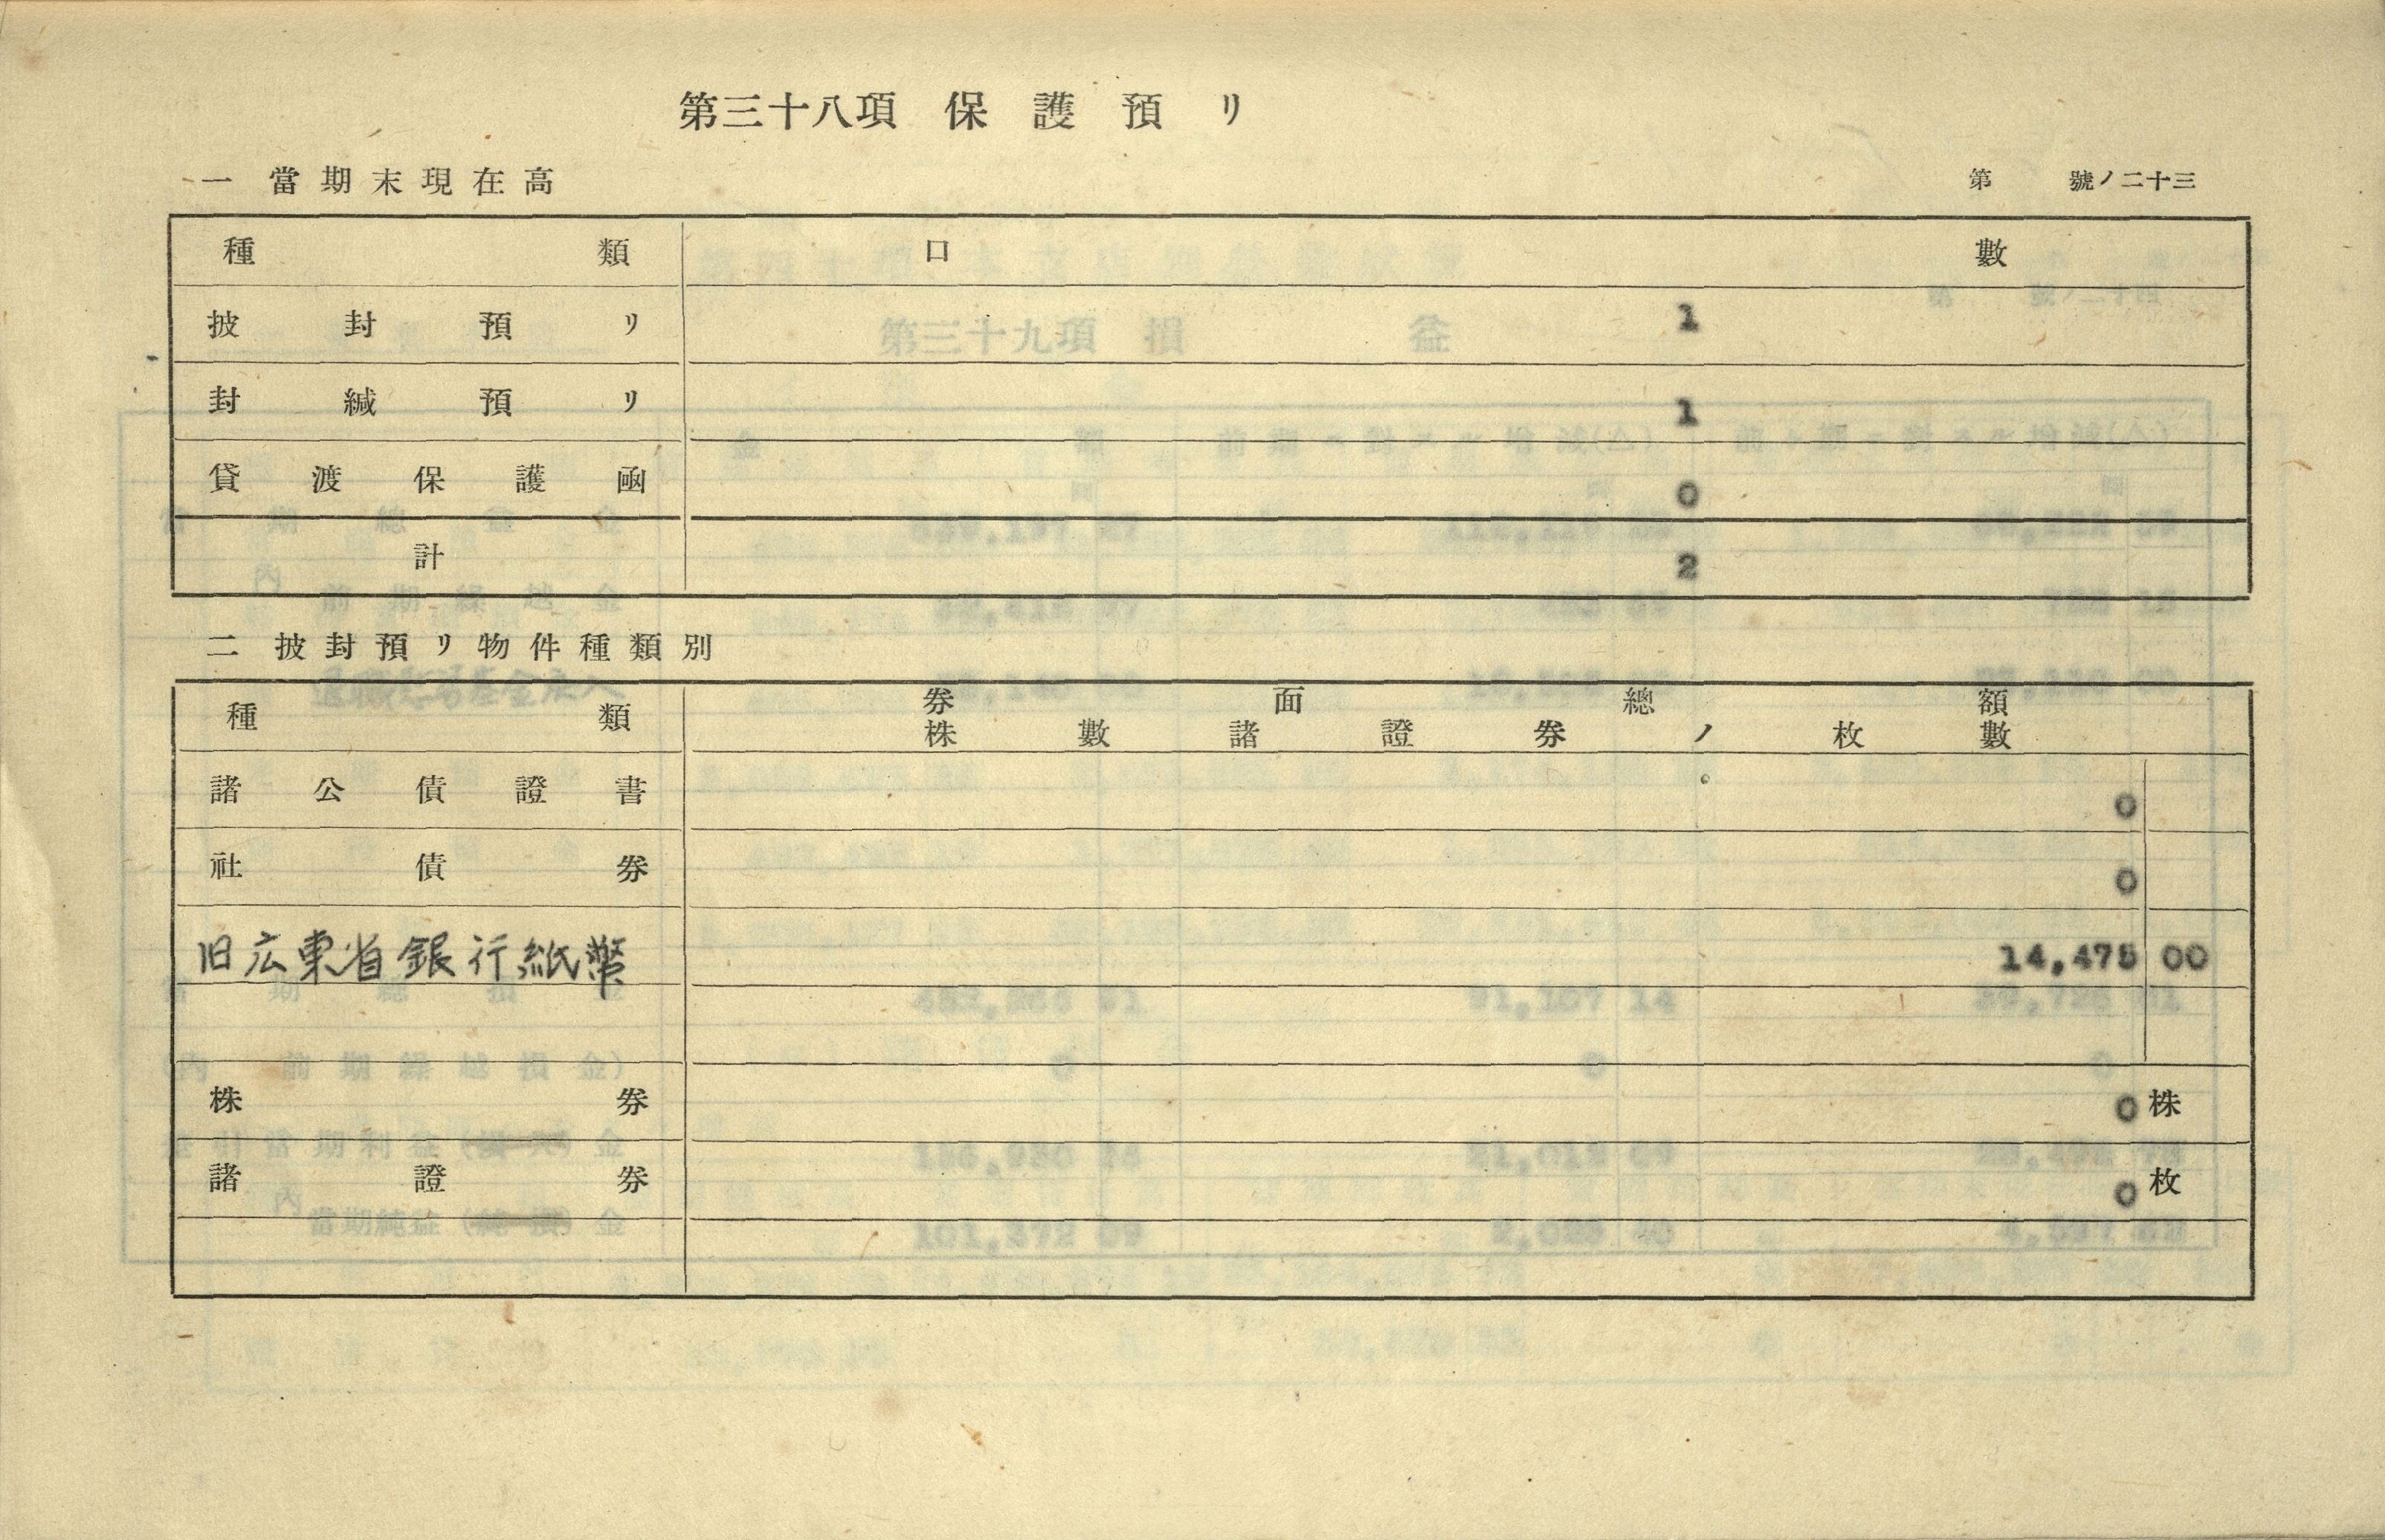 第三十八項 保護預リ
一 當期末現在高
第 號ノ二十三
種類 口數
披封預リ 1
封緘預リ 1
貸渡保護凾 0
計 2
二 披封預リ物件種類別
種類 券面總額
株數諸證券ノ枚數
諸公債證書 0
社債券 0
旧広東省銀行紙幣 14,475 00
株券 0 株
諸證券 0 枚